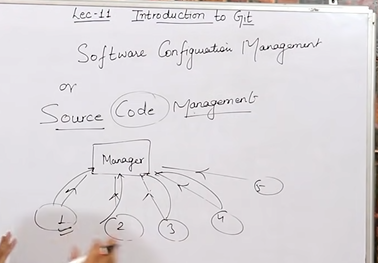 Lec-11 Introduction to Git
Software Configuration Management
or
Source Code Management
Manager
1 2 3 4 5